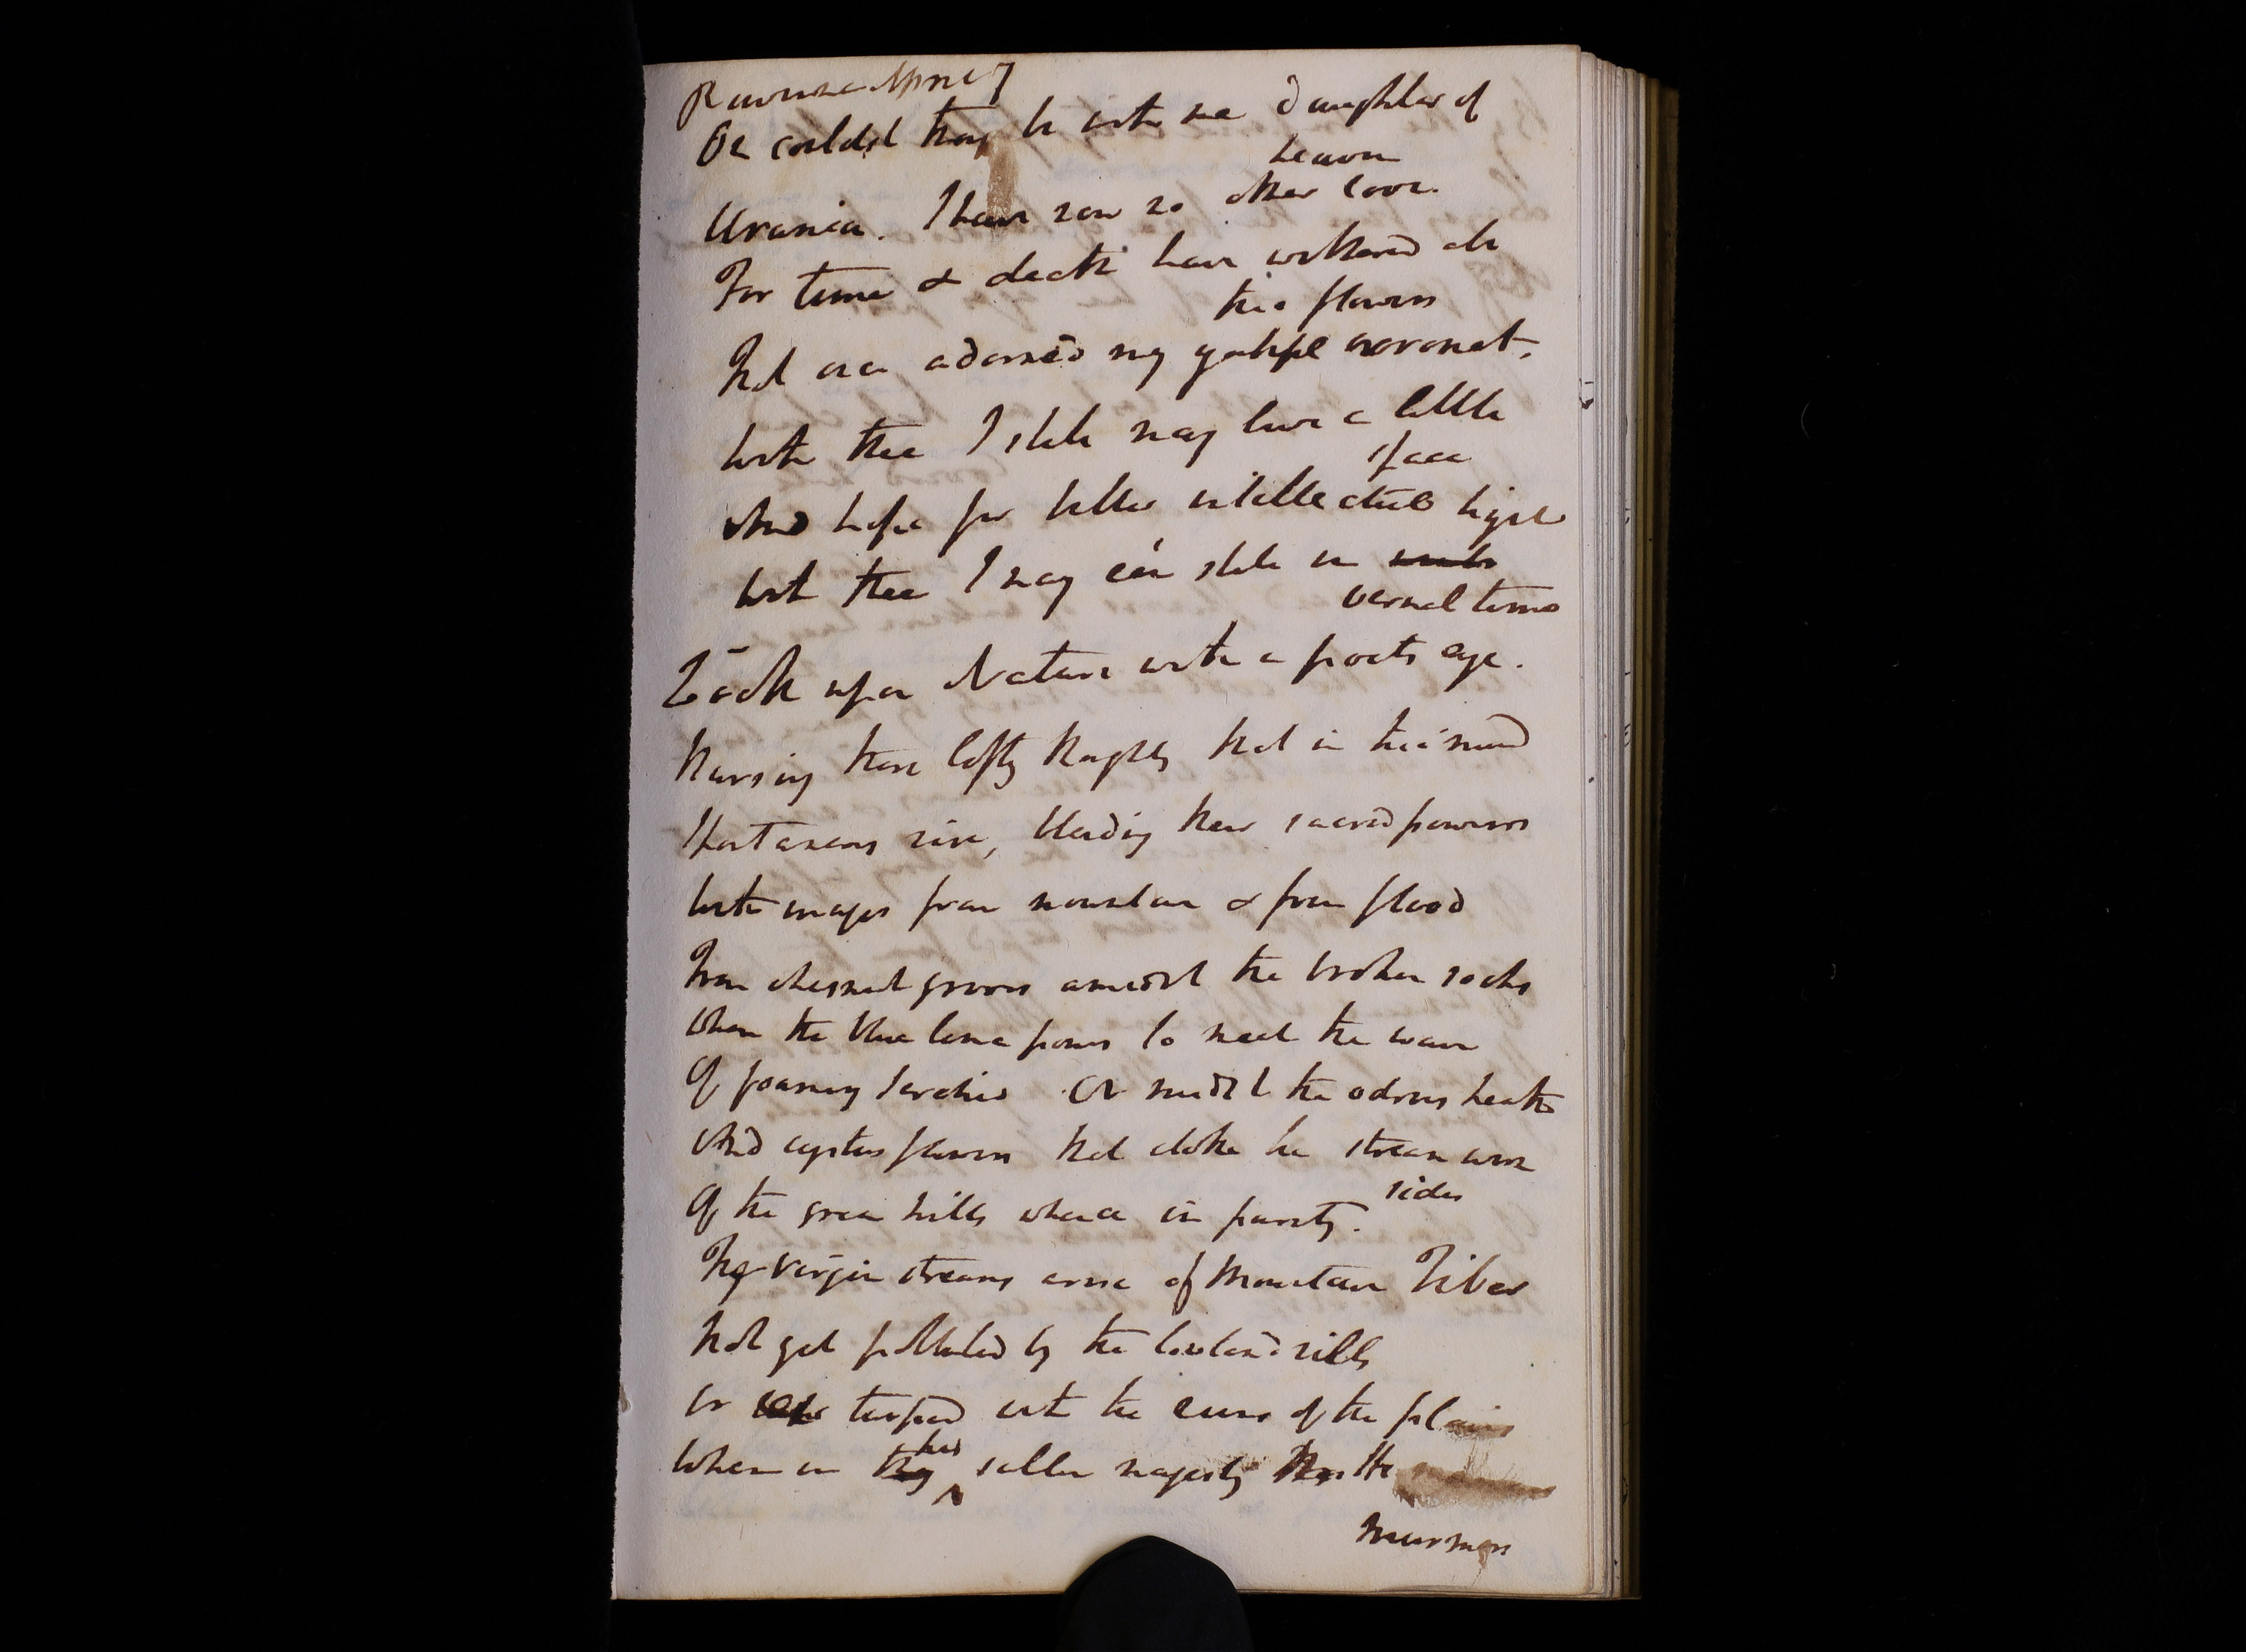 Ravenna April 7
Oh couldst thou be with me Daughter of
heaven
Urania. I have now no other love.
For time & death have withered all
the flowers
That once adorned my youthful coronet.
With thee I still may live a little
space
And hope for better intellectual light
With thee I may e'en still in
vernal times
Look upon Nature with a poets eye.
Nursing those lofty thoughts that in the mind
Spontaneous rise, blending their sacred powers
With images from mountain & from flood
From chesnut groves amidst the broken rocks
Where the blue Lima pours to meet the wave
Of foaming Serchio Or midst the odrous heath
And cystus flowers that clothe the stream worn
sides
Of the green hills whence in purity.
The virgin streams arise of Mountain Tiber
Not yet polluted by the lowland rills
or turpid with the ruins of the plain
When in his sullen majesty
murmurs